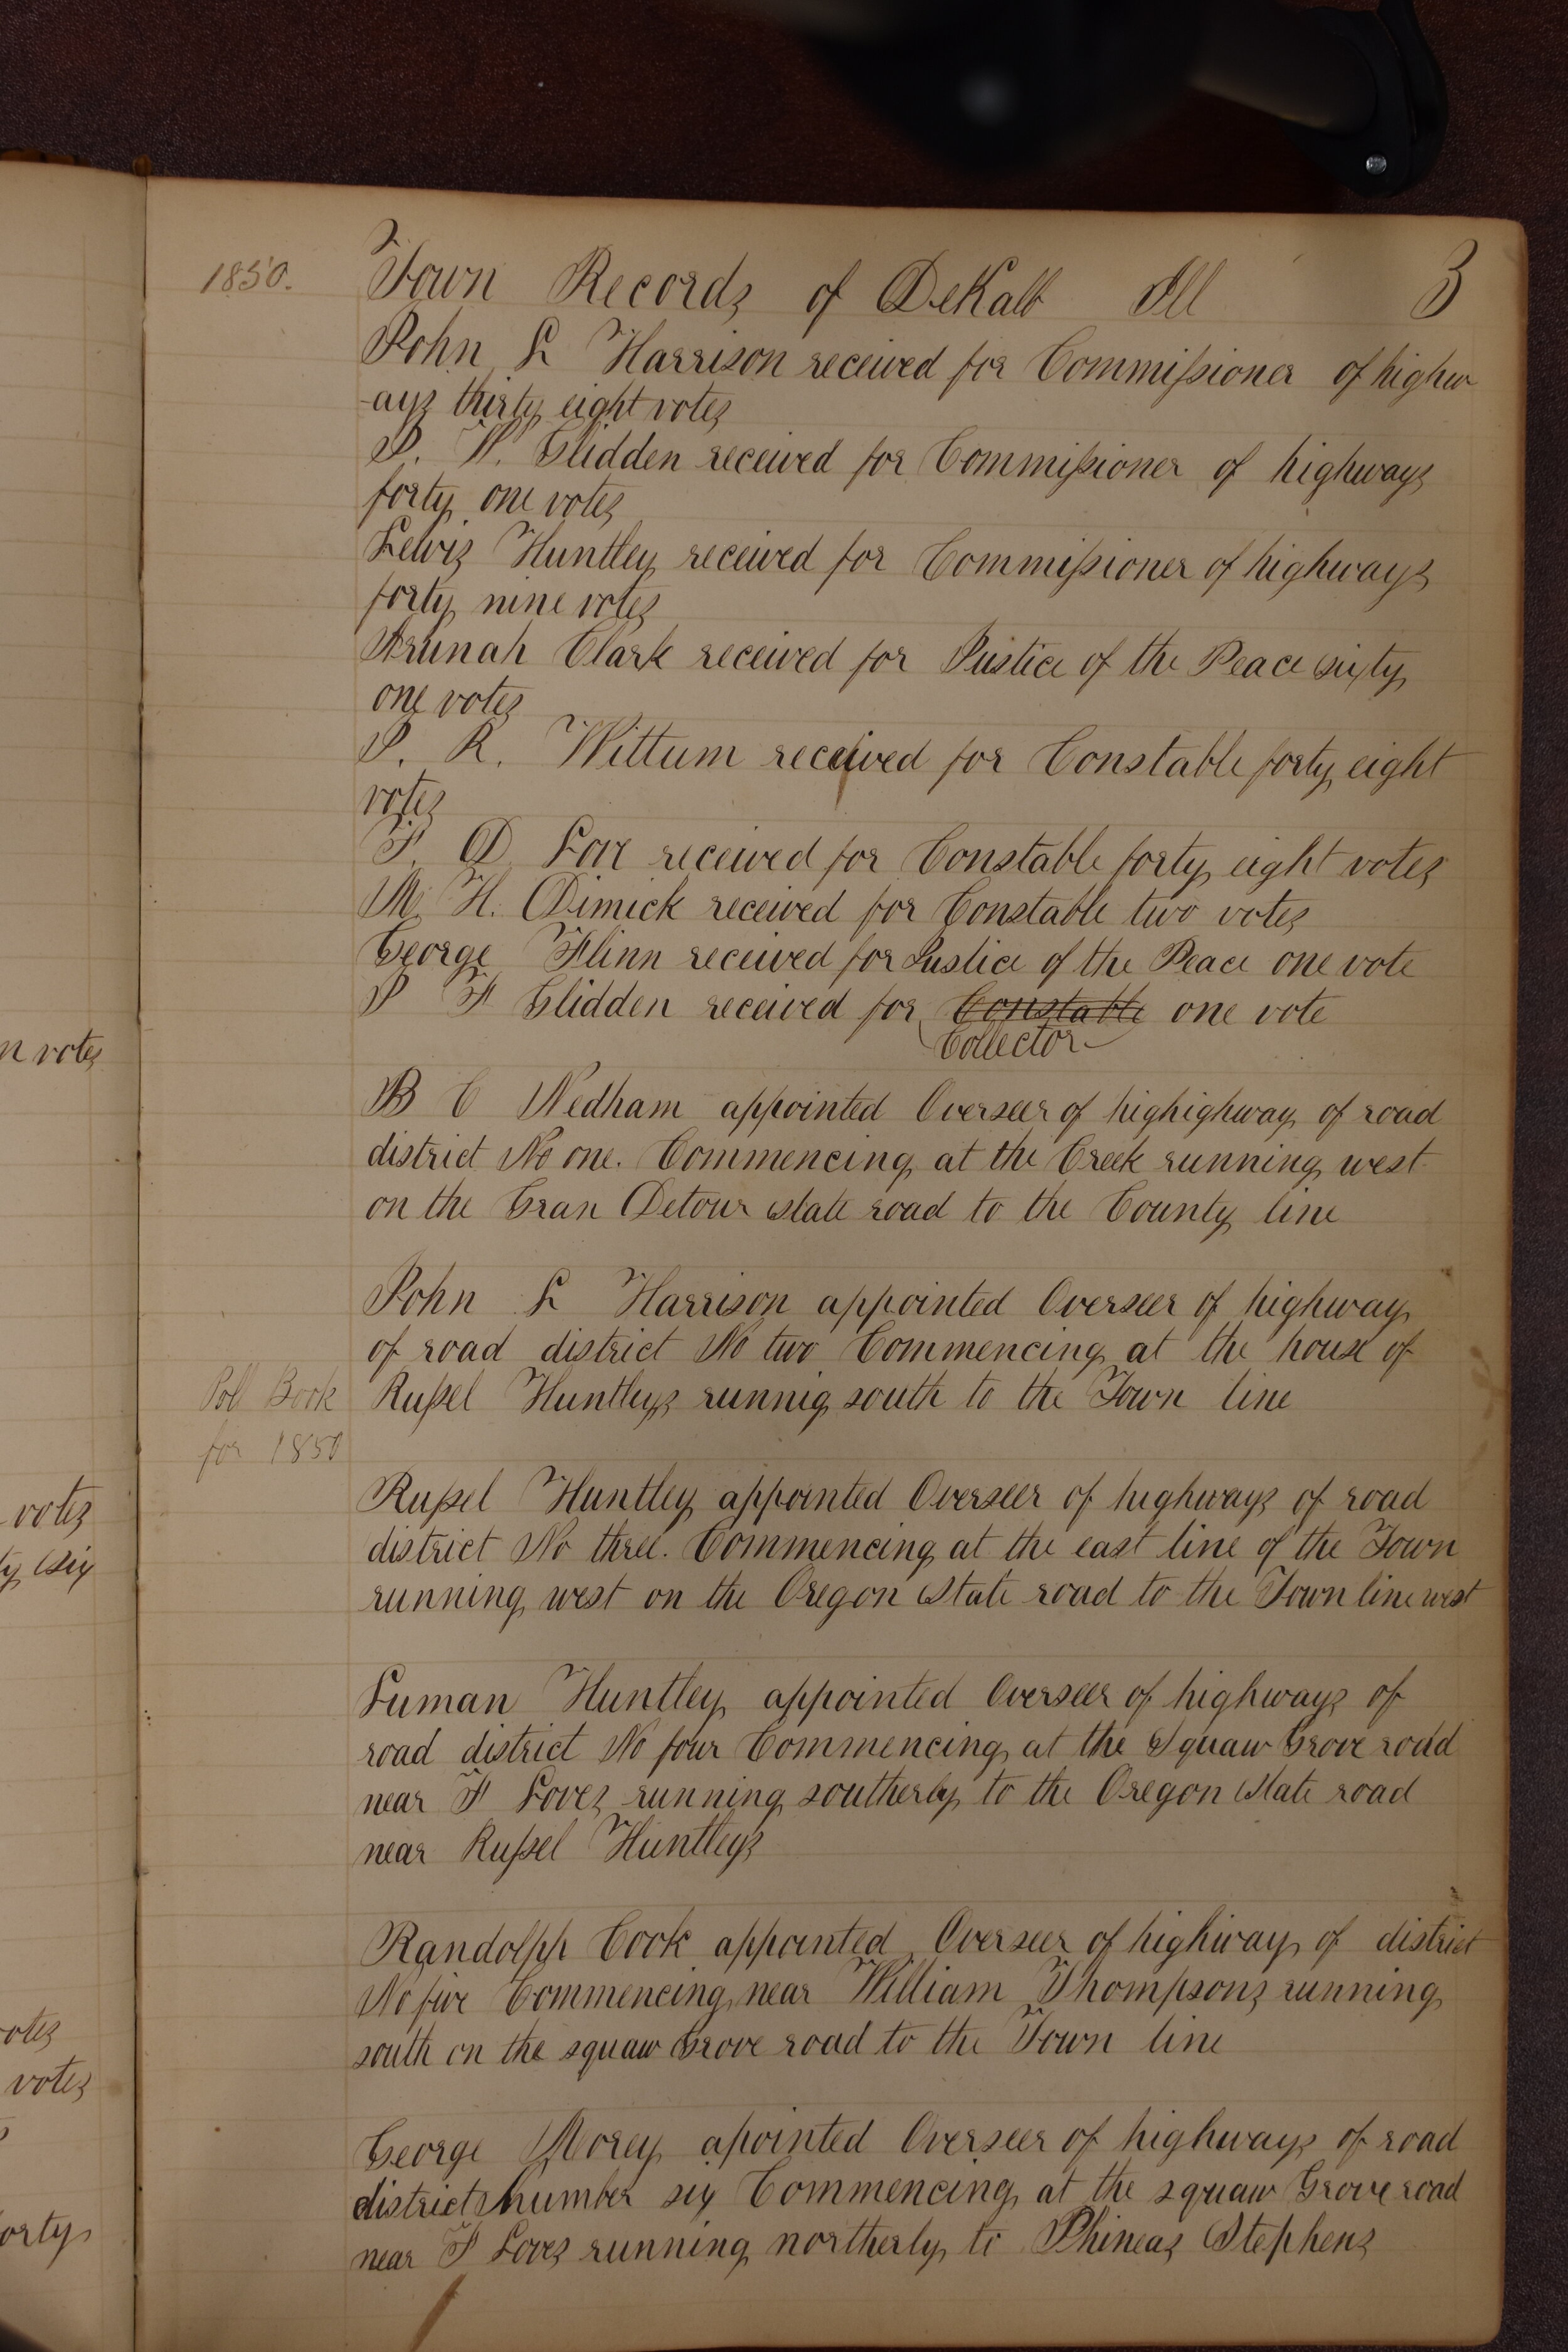 1850.
Town Records of DeKalb Ill 3
John L Harrison received for Commissioner of highw
-ays thirty eight votes
J. W. Glidden received for Commissioner of highways
forty one votes
Lewis Huntley received for Commissioner of highways
forty nine votes
Arunah Clark received for Justice of the Peace sixty
one votes
J. R. Wittum received for Constable forty eight
votes
F. D. Love received for Constable forty eight votes
M. H. Dimick received for Constable two votes
George Flinn received for Justice of the Peace one vote
J F Glidden received for Constable one vote
Collector
B C Nedham appointed Overseer of highighway of road
district No one. Commencing at the Creek running west
on the Gran Detour state road to the County line
John L Harrison appointed Overseer of highway
of road district No two Commencing at the house of
Russel Huntleys runnig south to the Town line
Poll Book
for 1850
Russel Huntley appointed Overseer of highways of road
district No three. Commencing at the east line of the Town
running west on the Oregon State road to the Town line west
Luman Huntley appointed Overseer of highways of
road district No four Commencing at the Squaw Grove road
near F Loves running southerly to the Oregon State road
near Russel Huntleys
Randolph Cook appointed Overseer of highway of district
No five Commencing near William Thompsons running
south on the squaw Grove road to the Town line
George Morey apointed Overseer of highways of road
district number six Commencing at the squaw Grove road
near F Loves running northerly to Phineas Stephens
n votes
votes
ty six
votes
votes
orty